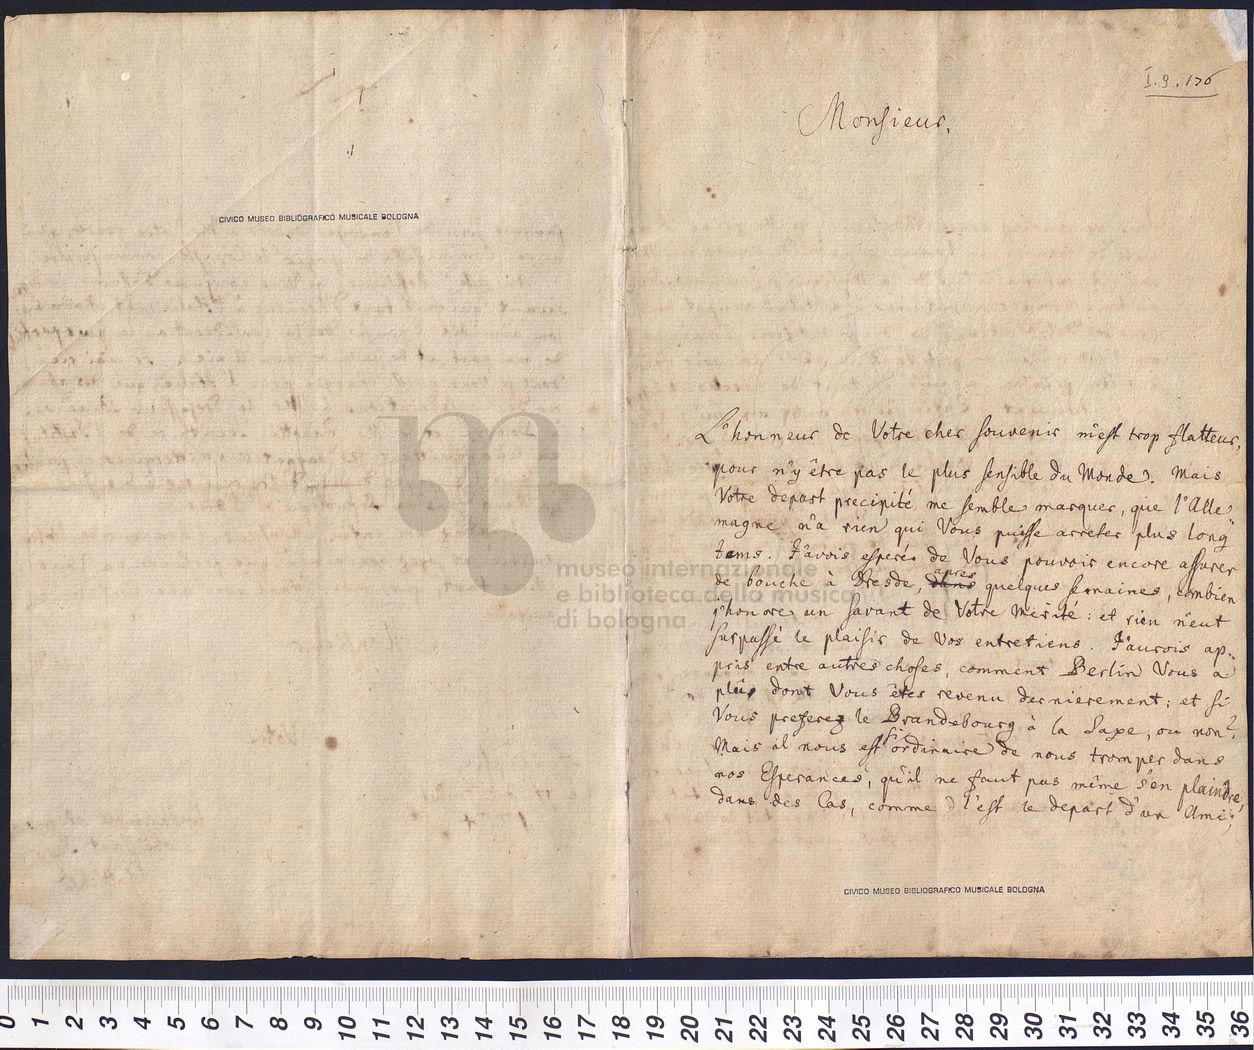 CIVICO MUSEO BIBLIOGRAFICO MUSICALE BOLOGNA
I.9.176
Monsieur,
L'honneur de Votre cher souvenir m'est trop flatteur,
pour n'y être pas le plus sensible du Monde. Mais
Votre depart precipité me semble marquer, que l'Alle=
magne n'a rien qui Vous puisse arreter plus long
tems. J'avois esperé de Vous pouvoir encore assurer
de bouche à Dresde, dans après quelques semaines, combien
j'honore un savant de Votre merite: et rien n'eut
surpassé le plaisir de Vos entretiens. J'aurois ap=
pris entre autres choses, comment Berlin Vous a
plû, dont Vous êtes revenu dernierement; et si
Vous preferez le Brandebourg à la Saxe, ou non?
Mais il nous est si ordinaire de nous tromper dans
nos Esperances, qu'il ne faut pas même s'en plaindre,
dans des Cas, comme l'est le depart d'un Ami;
CIVICO MUSEO BIBLIOGRAFICO MUSICALE BOLOGNA
museo internazionale
e biblioteca della musica
di bologna
0 1 2 3 4 5 6 7 8 9 10 11 12 13 14 15 16 17 18 19 20 21 22 23 24 25 26 27 28 29 30 31 32 33 34 35 36